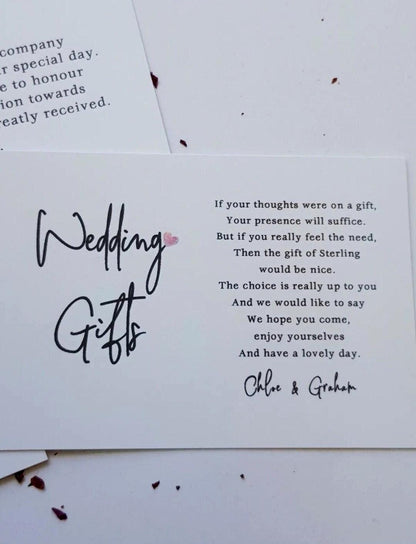 company
r special day.
e to honour
ion towards
eatly received.
Wedding
Gifts
If your thoughts were on a gift,
Your presence will suffice.
But if you really feel the need,
Then the gift of Sterling
would be nice.
The choice is really up to you
And we would like to say
We hope you come,
enjoy yourselves
And have a lovely day.
Chloe & Graham